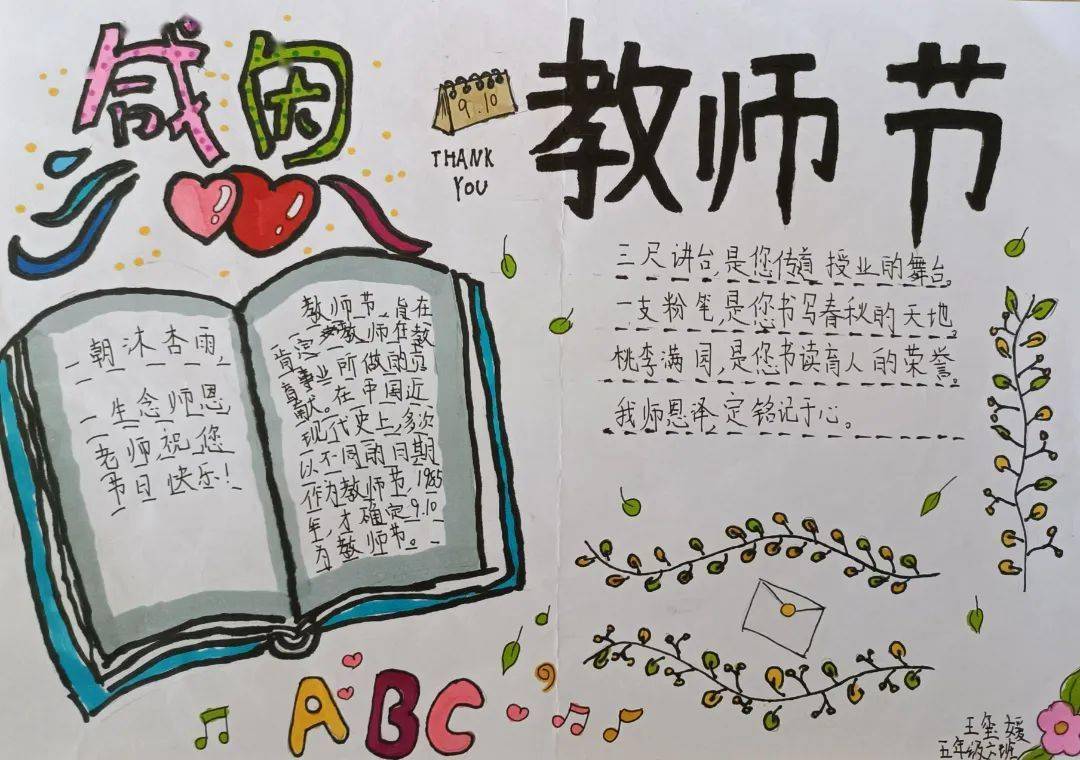 感恩
9.10
THANK
YOU
教师节
一朝沐杏雨,
一生念师恩
老师,祝您
节日快乐!
教师节,旨在
肯定教师在教
育事业所做的贡
献。在中国近
现代史上,多次
以不同的日期
作为教师节。1985
年,才确定9.10
为教师节。
三尺讲台,是您传道授业的舞台。
一支粉笔,是您书写春秋的天地。
桃李满园,是您书读育人的荣誉。
我师恩译,定铭记于心。
ABC
王玺媛
五年级六班